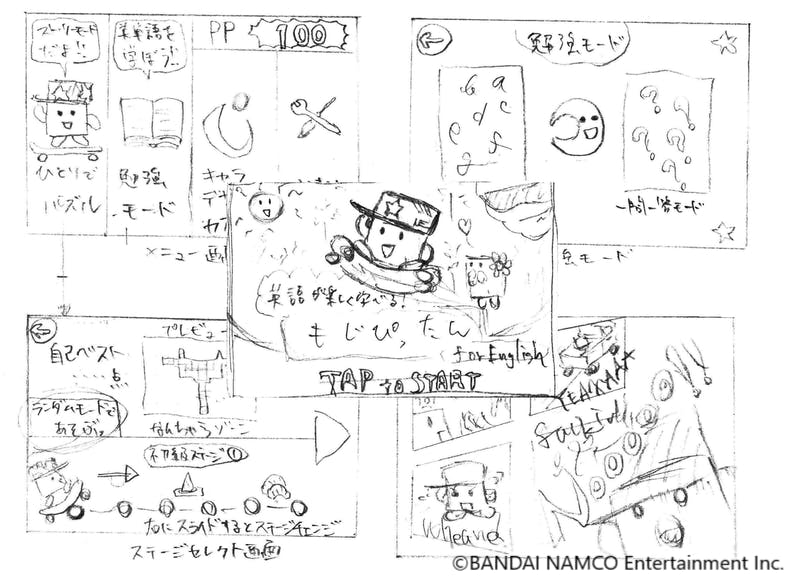 ストーリーモード
だよ!!
英単語を
学ぼう!!
PP 100
ひとりで
パズル
勉強
モード
キャラ
メニュー画
勉強モード
b a
d c
e f
g
? ?
? ?
?
一問一答モード
強モード
英語が楽しく学べる!
もじぴったん
for English
TAP to START
プレビュー
自己ベスト
……点
ランダムモードで
あそぶ
なんちゃらゾーン
初級ステージ①
右にスライドするとステージチェンジ
ステージセレクト画面
©BANDAI NAMCO Entertainment Inc.